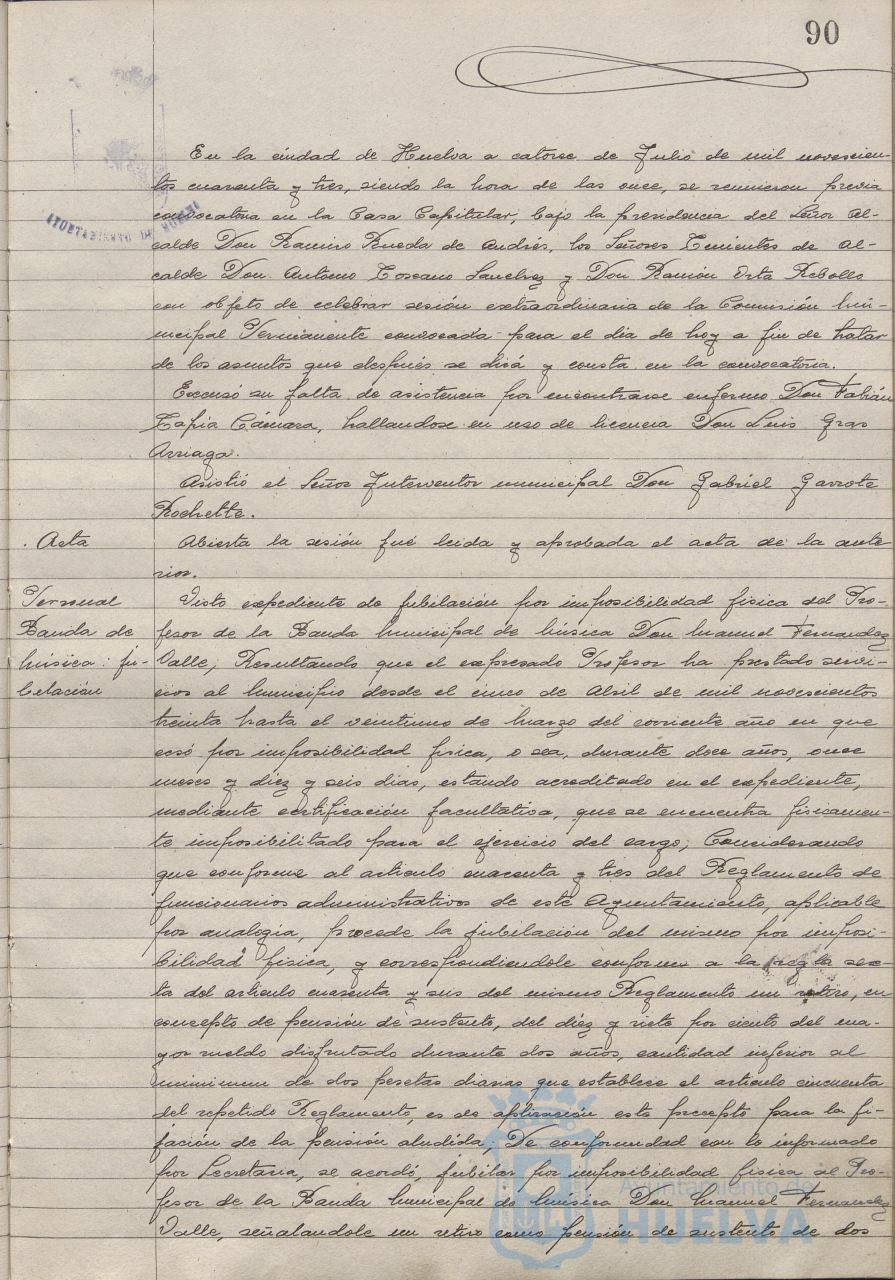 90
En la ciudad de Huelva a catorce de Julio de mil novescien-
tos cuarenta y tres, siendo la hora de las once, se reunieron previa
convocatoria en la Casa Capitular, bajo la presidencia del Señor Al-
calde Don Ramiro Rueda de Andrés, los Señores Tenientes de Al-
calde Don Antonio Toscano Sanchez y Don Ramón Orta Rebollo
con objeto de celebrar sesión extraordinaria de la Comisión Mu-
nicipal Permanente convocada para el dia de hoy a fin de tratar
de los asuntos que después se dirá y consta en la convocatoria.
Excusó su falta de asistencia por encontrarse enfermo Don Fabián
Tapia Cámara, hallandose en uso de licencia Don Luis Gras
Arriaga.
Asistió el Señor Interventor municipal Don Gabriel Garrote
Rochette.
. Acta
Abierta la sesión fué leida y aprobada el acta de la ante
rior.
Personal
Banda de
música: ju-
bilación
Visto expediente de jubilación por imposibilidad fisica del Pro-
fesor de la Banda Municipal de Música Don Manuel Fernandez
Valle; Resultando que el expresado Profesor ha prestado servi-
cios al Municipio desde el cinco de Abril de mil novescientos
treinta hasta el veintiuno de Marzo del corriente año en que
cesó por imposibilidad fisica, o sea, durante doce años, once
meses y diez y seis dias, estando acreditado en el expediente,
mediante certificación facultativa, que se encuentra fisicamen-
te imposibilitado para el ejercicio del cargo; Considerando
que conforme al articulo cuarenta y tres del Reglamento de
funcionarios administrativos de este Ayuntamiento, aplicable
por analogia, procede la jubilación del mismo por imposi-
bilidad fisica, y correspondiendole conforme a la regla sex-
ta del articulo cuarenta y seis del mismo Reglamento un retiro, en
concepto de pensión de sustento, del diez y siete por ciento del ma-
yor sueldo disfrutado durante dos años, cantidad inferior al
minimum de dos pesetas diarias que establece el articulo cincuenta
del repetido Reglamento, es de aplicación este precepto para la fi-
jación de la pensión aludida; De conformidad con lo informado
por Secretaria, se acordó, jubilar por imposibilidad fisica al Pro-
fesor de la Banda Municipal de Música Don Manuel Fernandez
Valle, señalandole un retiro como pensión de sustento de dos
AYUNTAMIENTO DE HUELVA
Ayuntamiento de
HUELVA